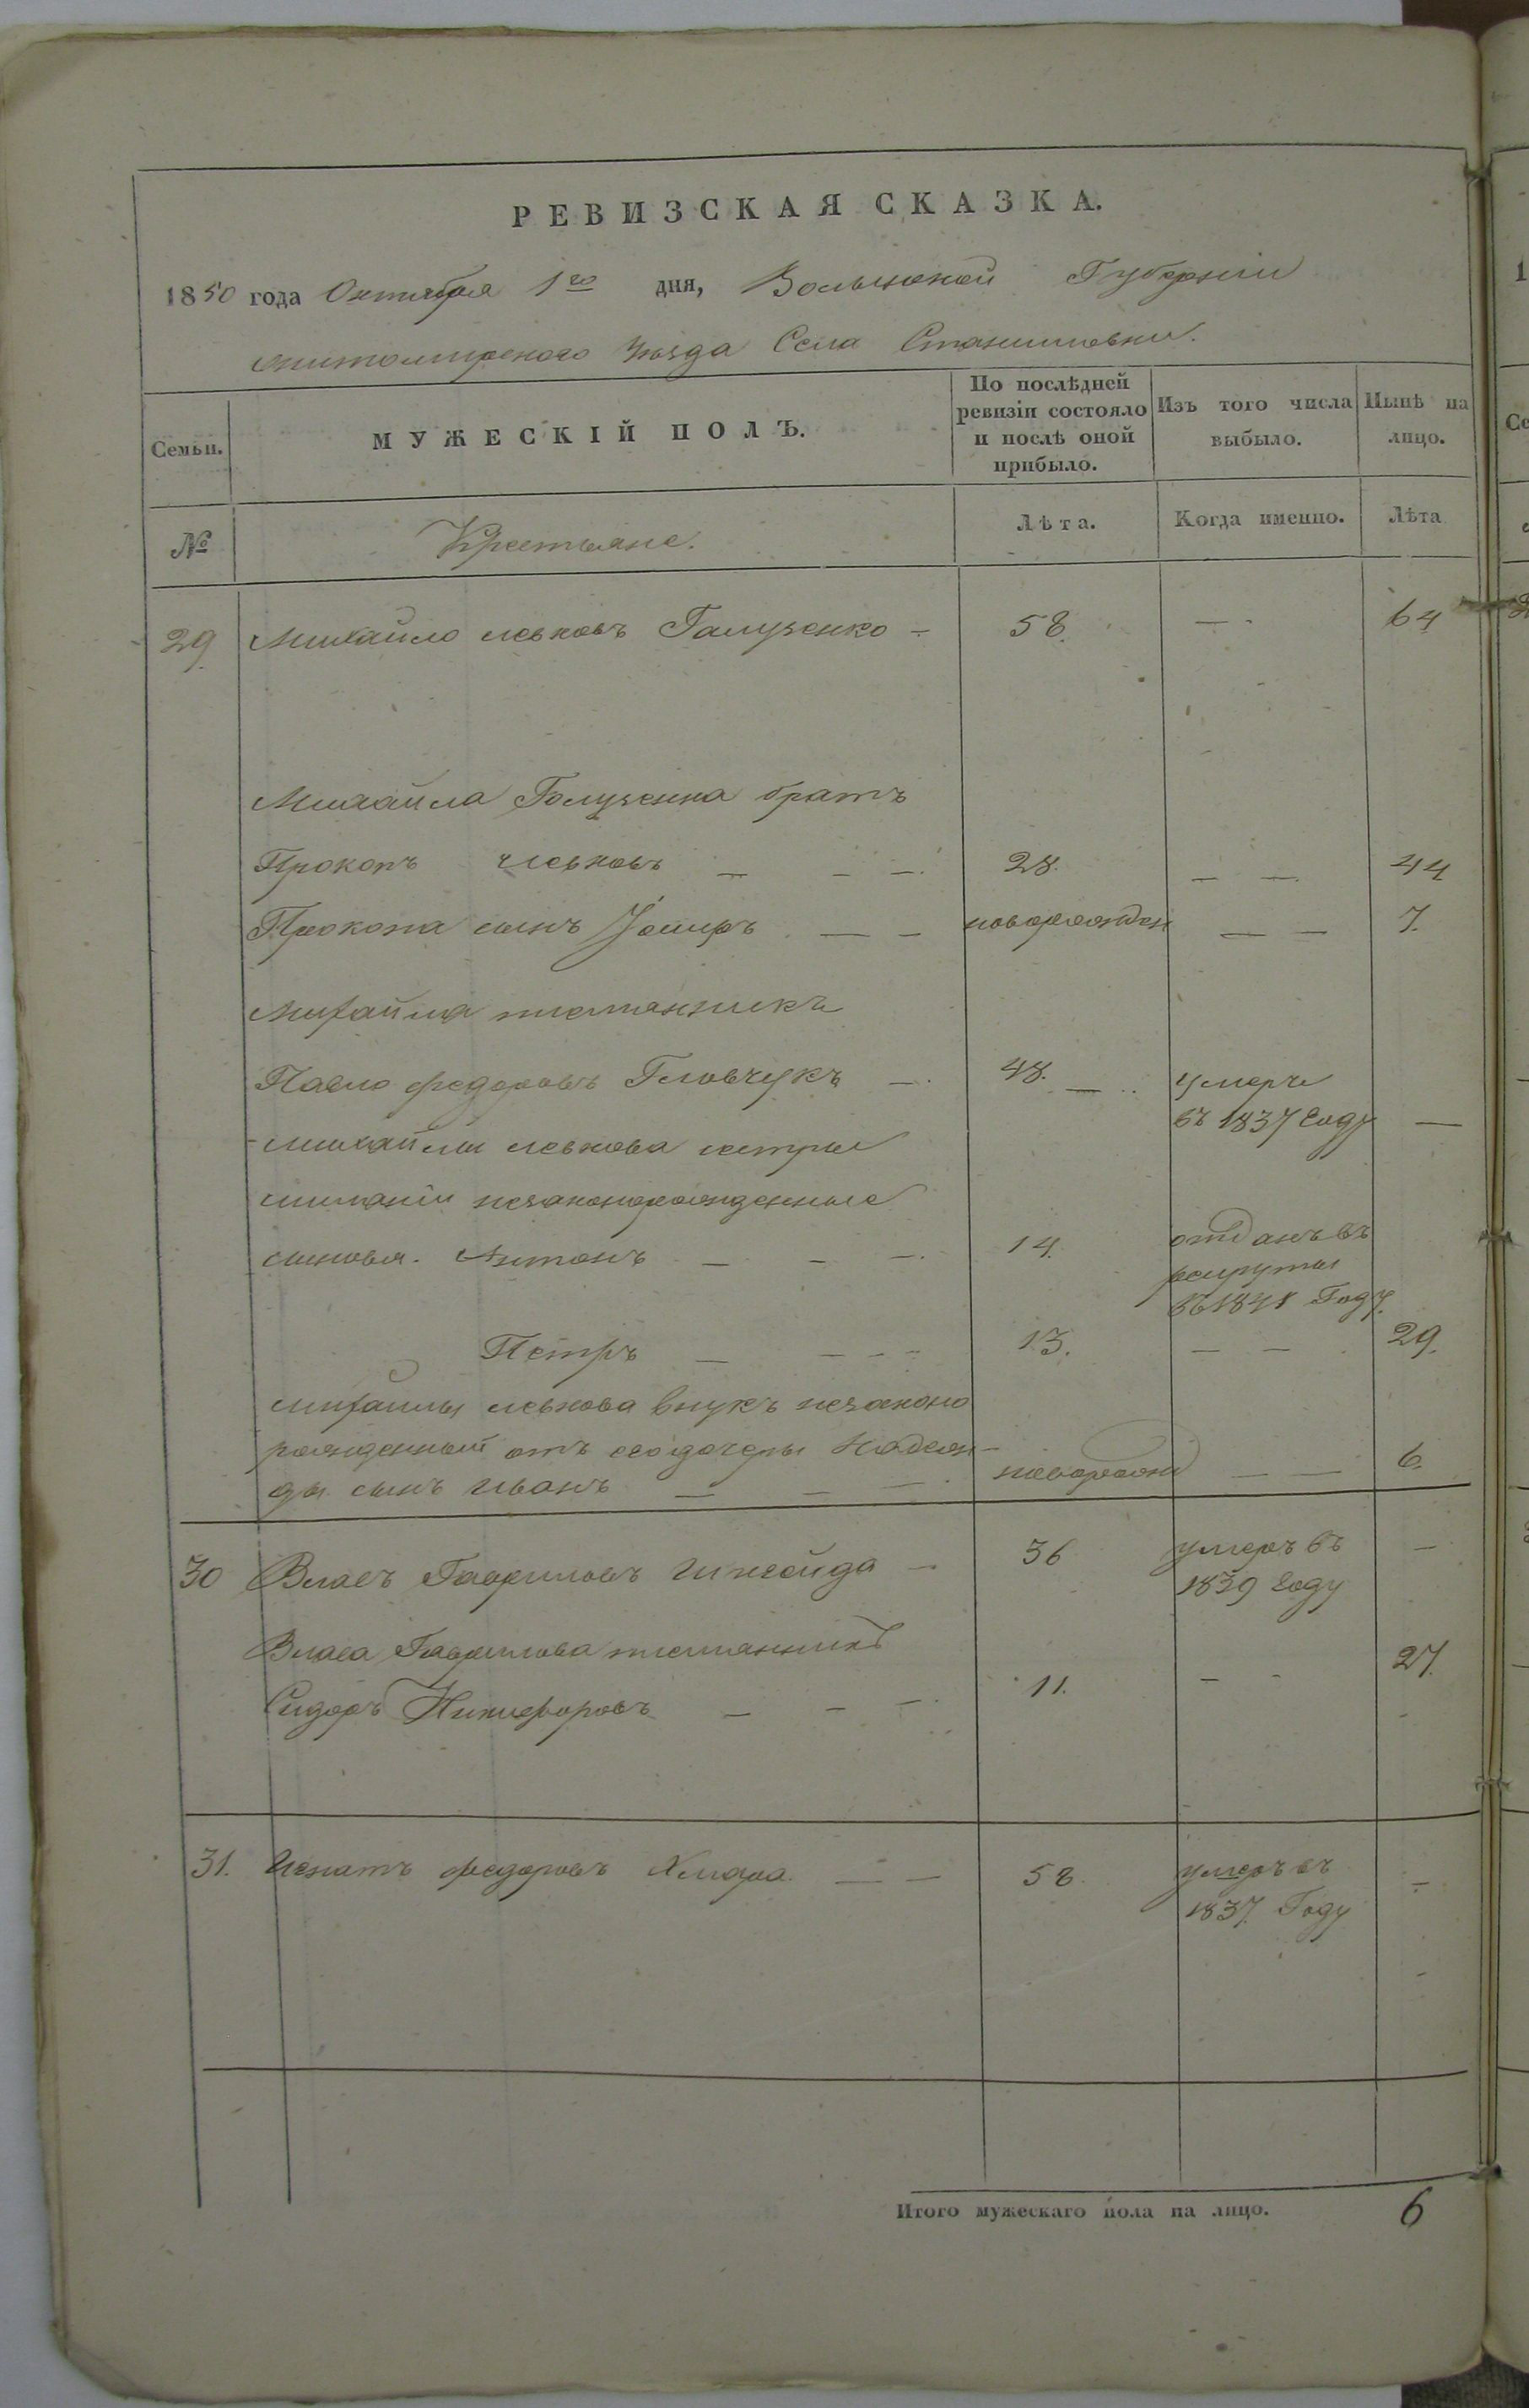 РЕВИЗСКАЯ СКАЗКА.
1850 года Октября 1го дня, Волынской Губерніи
житомирского Уѣзда Села Станишовки.
Семьи.
МУЖЕСКІЙ ПОЛЪ.
По послѣдней ревизіи состояло и послѣ оной прибыло.
Изъ того числа выбыло.
Нынѣ на лицо.
№
Крестьяне.
Лѣта.
Когда именно.
Лѣта
29. Михайло левковъ Галузенко — 58. — 64
Михайла Голузенка братъ
Прокопъ левковъ — — — 28. — — 44
Прокопа сынъ — — новорожден — — 7.
Михайла племянникъ
Павло федоровъ Головчукъ — 48. — умеръ
въ 1837 Году —
михайлы левкова сестры
незаконорожденные
сыновья. Антонъ — — — 14. отданъ въ
рекруты
въ 1841 Году.
Петръ — — — — 13. — — 29.
михайлы левкова внукъ незаконо
рожденный отъ его дочеры Надеж-
ды сынъ иванъ — — — новорожд — — 6.
30 Власъ Гавриловъ — 36 умеръ въ —
1839 Году
Власа Гаврилова племянникъ
Сидоръ Никифоровъ — — — 11. — — 27.
31. Игнатъ федоровъ Хмара — — 58. умеръ въ —
1837. Году
Итого мужескаго пола на лицо. 6